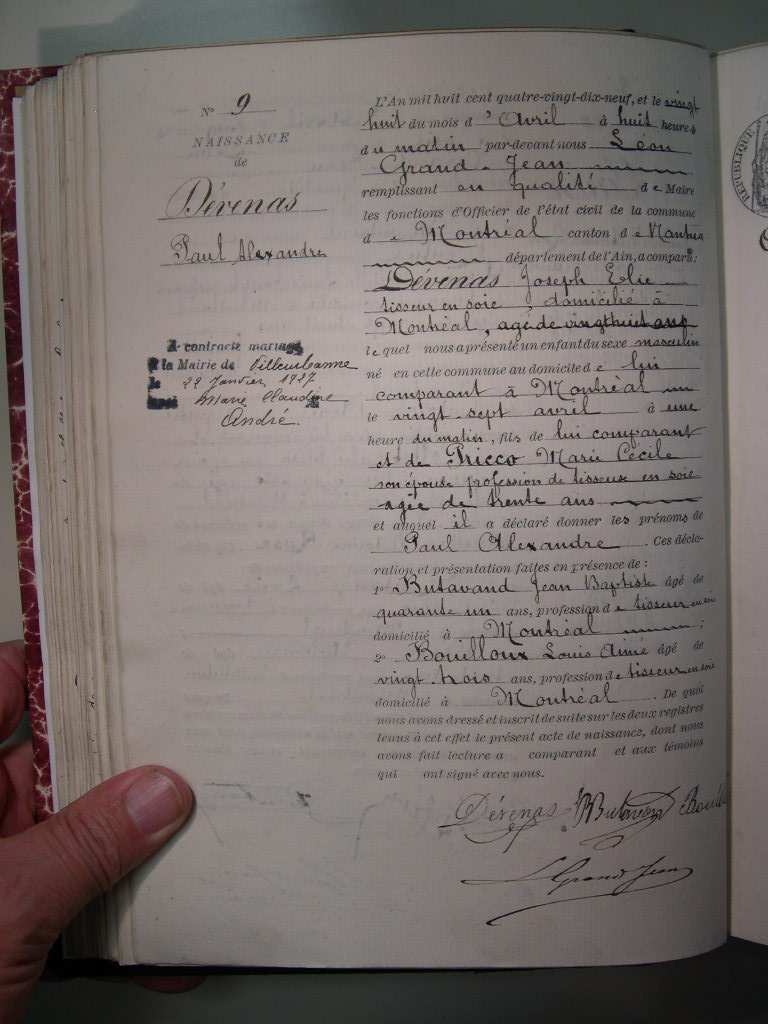 N° 9
NAISSANCE
de
Dévenas
Paul Alexandre
A contracté mariage
à la Mairie de Villeurbanne
le 22 Janvier 1927
avec Marie Claudine
André.
L'An mil huit cent quatre-vingt-dix-neuf, et le vingt
huit du mois d'Avril à huit heures
du matin par-devant nous Léon
Grand-Jean
remplissant en qualité de Maire
les fonctions d'Officier de l'état civil de la commune
de Montréal canton de Nantua
département de l'Ain, a comparu:
Dévenas Joseph Elie
tisseur en soie domicilié à
Montréal, agé de vingt huit ans
lequel nous a présenté un enfant du sexe masculin
né en cette commune au domicile de lui
comparant à Montréal
le vingt-sept avril à une
heure du matin, fils de lui comparant
et de Pricco Marie Cécile
son épouse profession de tisseuse en soie
agée de trente ans
et auquel il a déclaré donner les prénoms de
Paul Alexandre. Ces décla-
ration et présentation faites en présence de :
1° Butavand Jean Baptiste âgé de
quarante un ans, profession de tisseur en soie
domicilié à Montréal ;
2° Bouilloux Louis Aimé âgé de
vingt trois ans, profession de tisseur en soie
domicilié à Montréal. De quoi
nous avons dressé et inscrit de suite sur les deux registres
tenus à cet effet le présent acte de naissance, dont nous
avons fait lecture a comparant et aux témoins
qui ont signé avec nous.
Dévenas Butavand
L Grand Jean
RÉPUBLIQUE